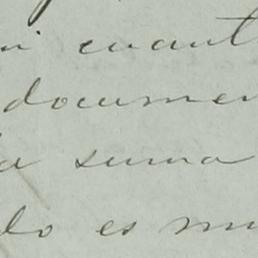 ni cuant
documen
la suma
do es mu